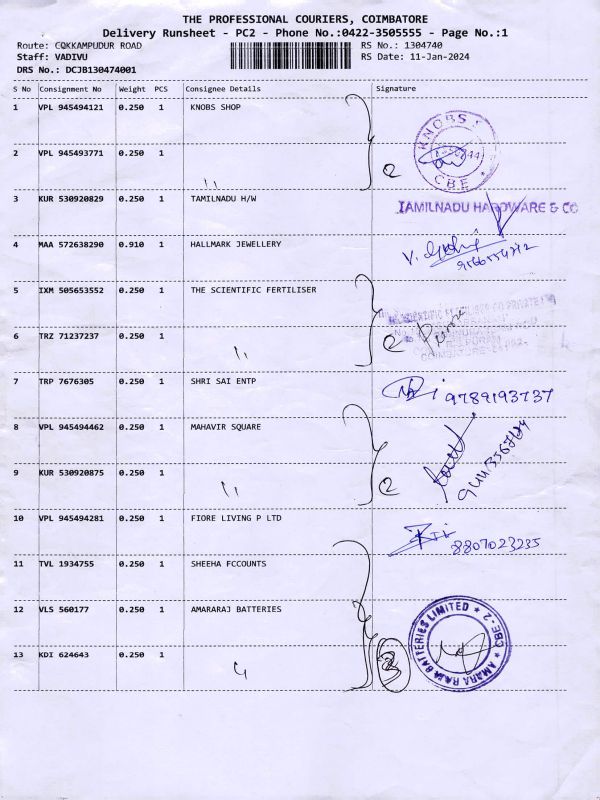 THE PROFESSIONAL COURIERS, COIMBATORE
Delivery Runsheet - PC2 - Phone No.:0422-3505555 - Page No.:1
Route: CQKKAMPUDUR ROAD RS No.: 1304740
Staff: VADIVU RS Date: 11-Jan-2024
DRS No.: DCJB130474001
S No Consignment No Weight PCS Consignee Details Signature
1 VPL 945494121 0.250 1 KNOBS SHOP
KNOBS
CBE
2 VPL 945493771 0.250 1 " 2
3 KUR 530920829 0.250 1 TAMILNADU H/W TAMILNADU HARDWARE & CO
4 MAA 572638290 0.910 1 HALLMARK JEWELLERY
5 IXM 505653552 0.250 1 THE SCIENTIFIC FERTILISER
SCIENTIFIC FERTILISER CO PRIVATE
6 TRZ 71237237 0.250 1 " 2
COIMBATORE
7 TRP 7676305 0.250 1 SHRI SAI ENTP 9789193737
8 VPL 945494462 0.250 1 MAHAVIR SQUARE
9 KUR 530920875 0.250 1 " 2
10 VPL 945494281 0.250 1 FIORE LIVING P LTD 8807023235
11 TVL 1934755 0.250 1 SHEEHA FCCOUNTS
12 VLS 560177 0.250 1 AMARARAJ BATTERIES
AMARA RAJA BATTERIES LIMITED ★ CBE-2 ★
13 KDI 624643 0.250 1 " 3